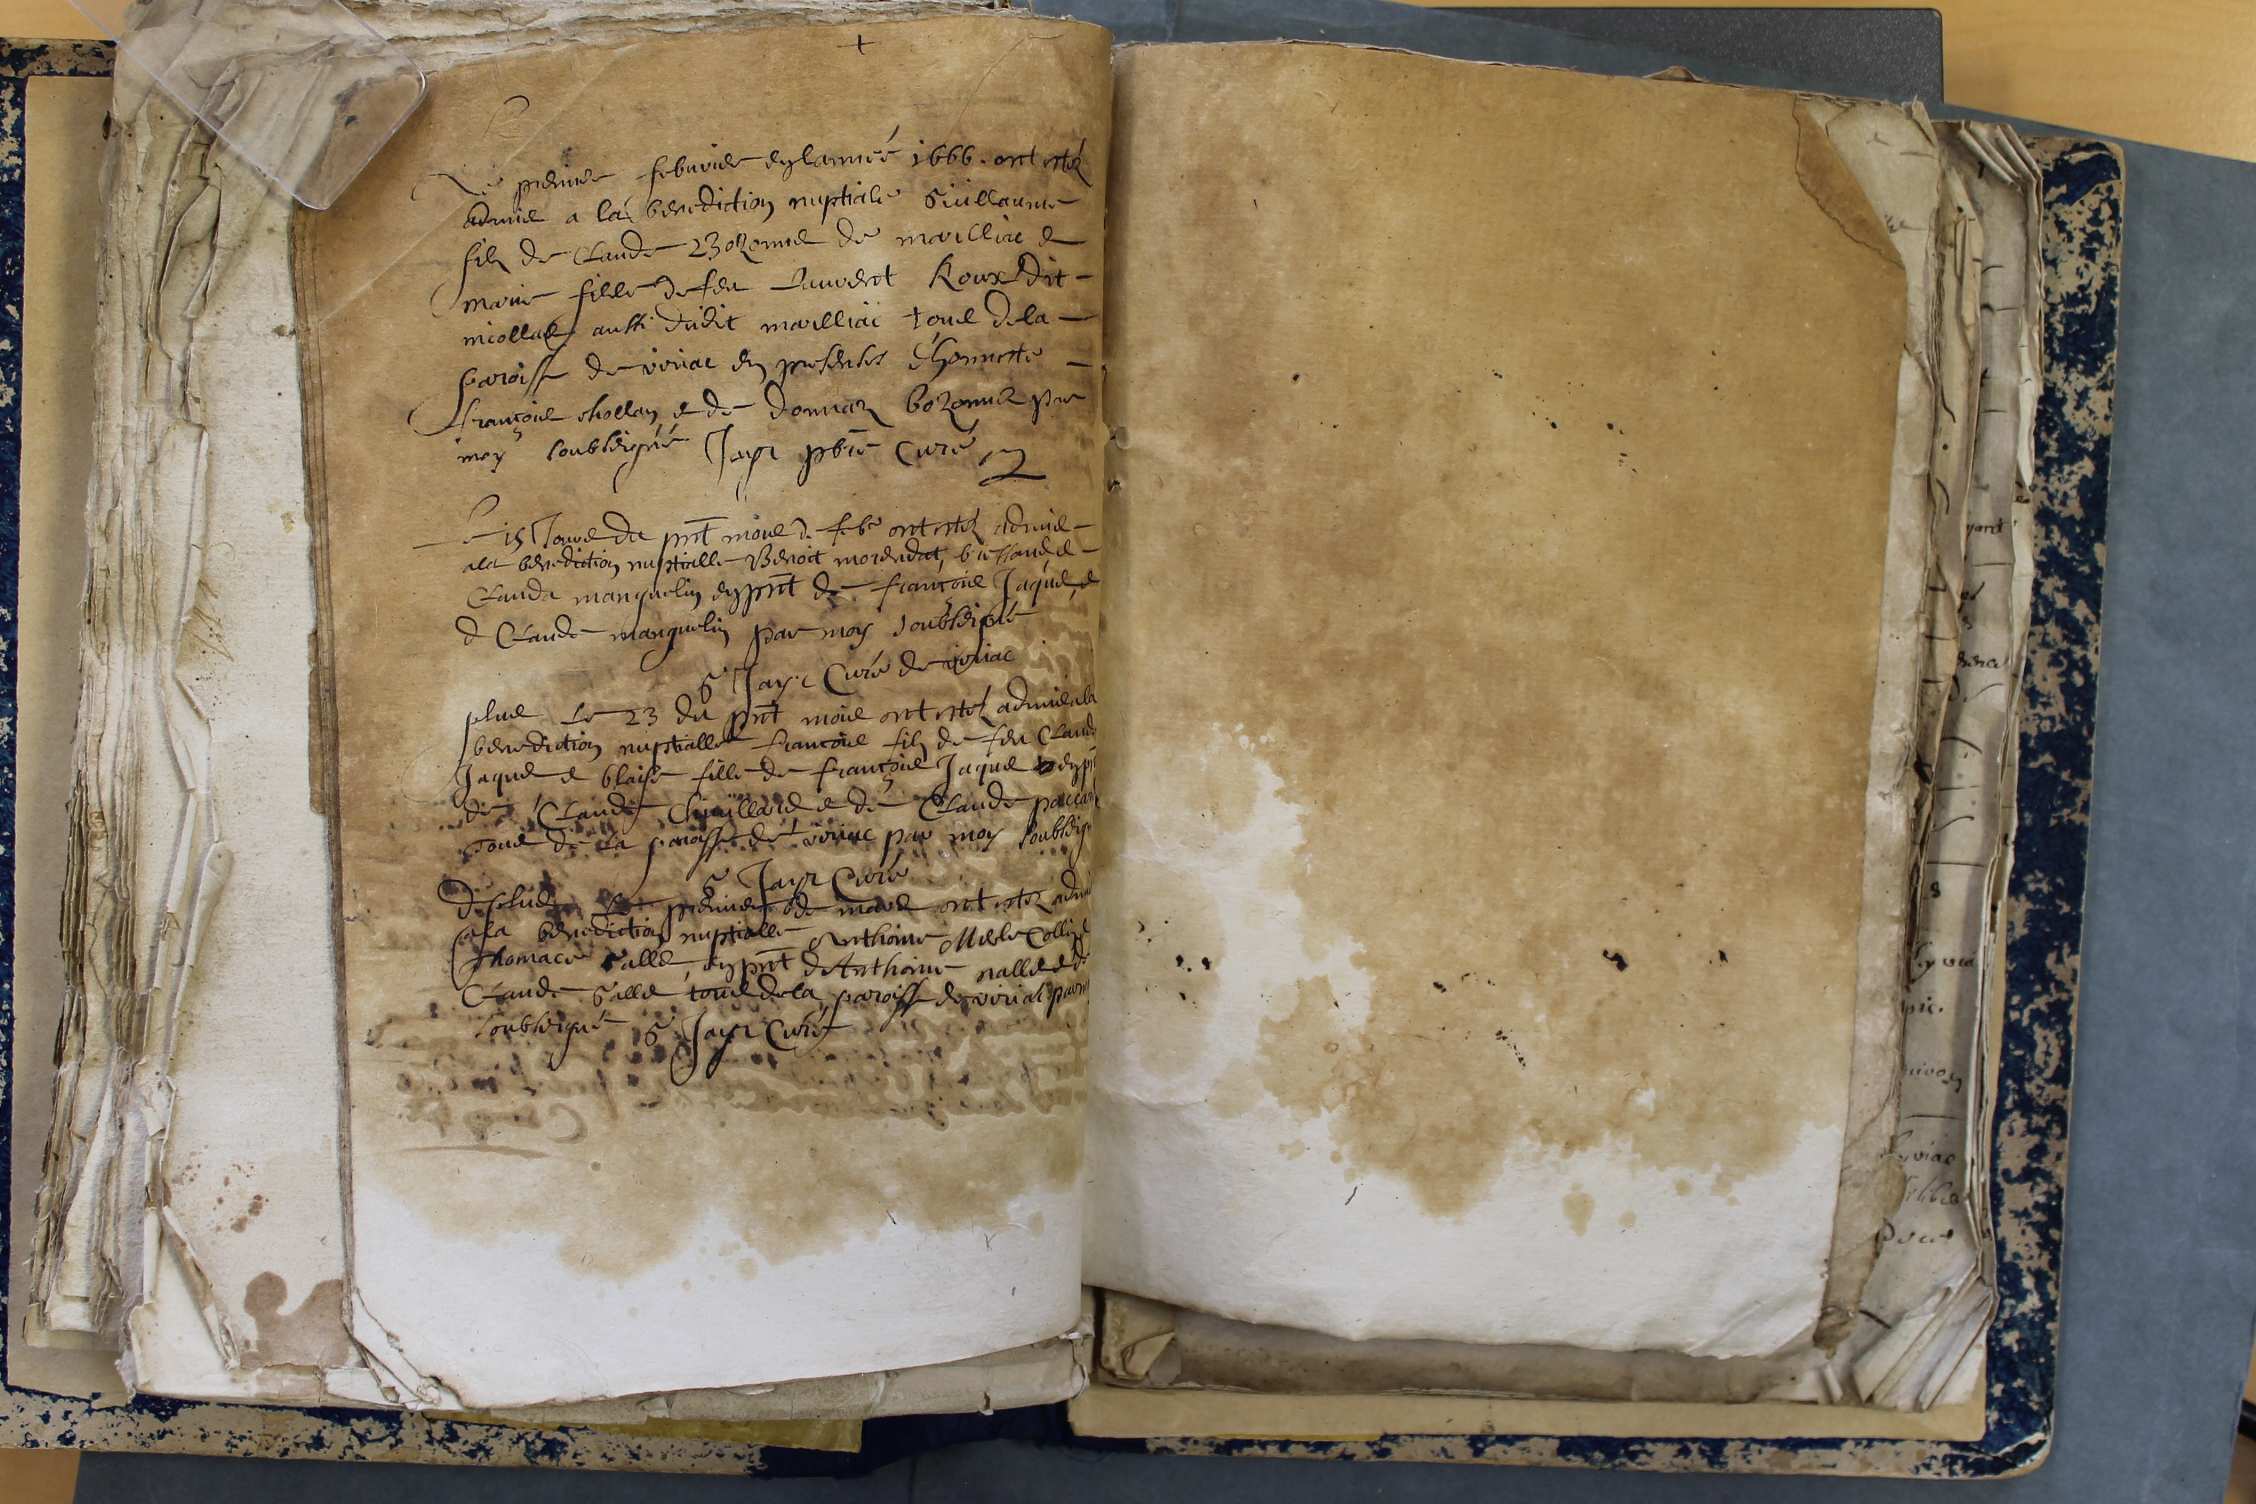 +
Le premier febvrier en lannéé 1666. ont estéz
admis a la benediction nuptiale Guillaume
filz de Claude Bozonnes de marlliac e
marie fille de feu Laurent Roux dit
nicollas aussi dudit marlliac tous de la
paroisse de viriac en presences d'honneste
françois chollan e de donnaz bozonnes par
moy soubsigné Jayr pbre Curé
Le 15 Jour du pnt mois de febr ont estéz admis
a la benediction nuptialle Benoit morendat, e
Clauda manguelin en pnt de françois Jaques, e
d Claude manguelin par moy soubsigné
Jayr Curé de viriac
plus le 23 du pnt mois ont estéz admis a la
benediction nuptialle francois filz de feu Claude
Jaques e blaise fille de françois Jaques en pnt
de Claude e de Claude
tous de la paroisse de viriac par moy soubsig
Jayr Curé
de plus le premier de mars ont estez admi
a la benediction nuptialle Anthoine Merle
Thomace Salle, en pnt d Anthoine e d
Claude Salle tous de la paroisse de viriac par m
soubsigné Jayr Curé